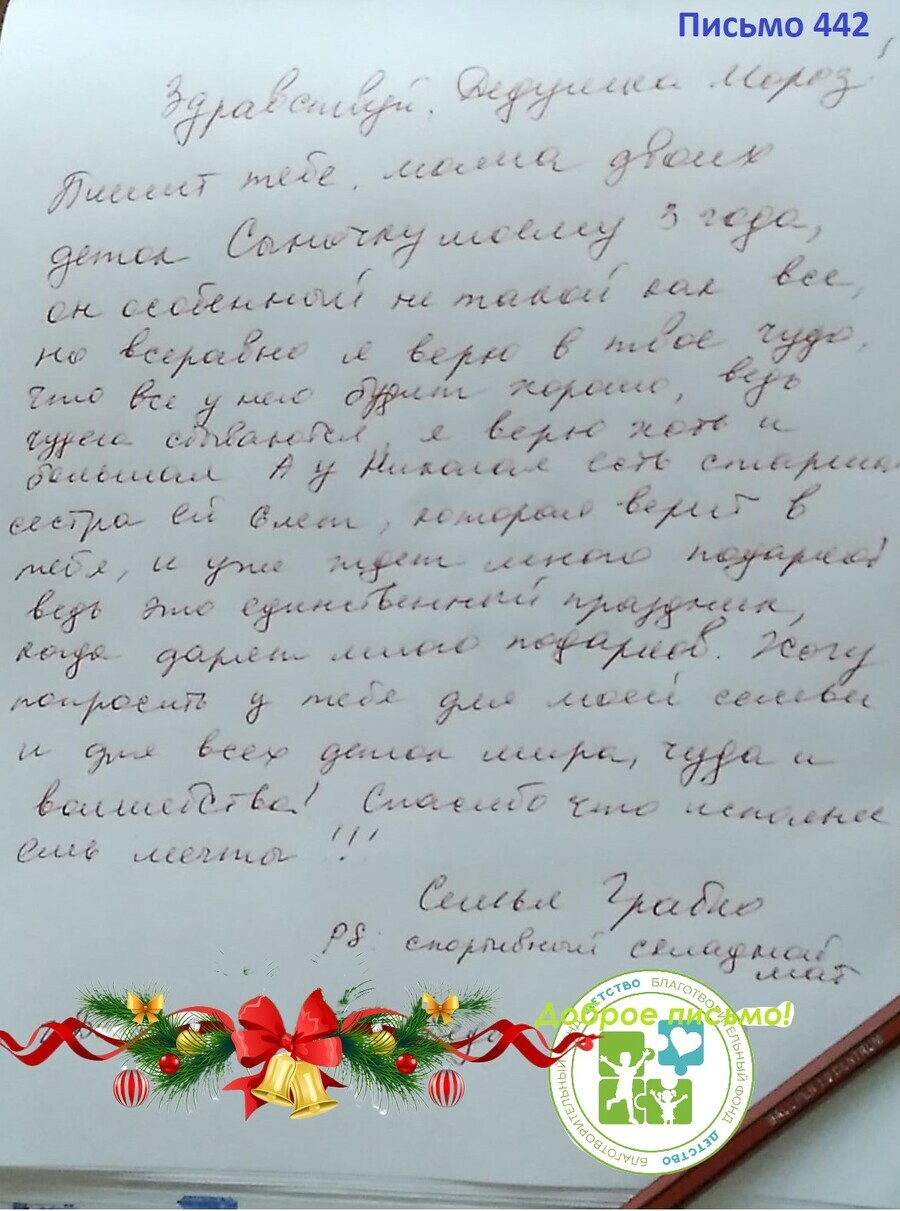 Письмо 442
Здравствуй, Дедушка Мороз!
Пишит тебе, мама двоих
деток Сыночку моему 3 года,
он особенный не такой как все,
но всеравно я верю в твое чудо,
что все у него будет хорошо, ведь
чудеса сбываются, я верю хоть и
большая А у Николая есть старшая
сестра ей 6 лет, которая верит в
тебя, и уже ждет много подарков
ведь это единственный праздник,
когда дарят много подарков. Хочу
попросить у тебя для моей семьи
и для всех деток мира, чуда и
волшебства! Спасибо что исполня
ешь мечты!!!
Семья Грабко
PS: спортивный складной
мат
Доброе письмо!
БЛАГОТВОРИТЕЛЬНЫЙ ФОНД ДЕТСТВО БЛАГОТВОРИТЕЛЬНЫЙ ДЕТСТВО